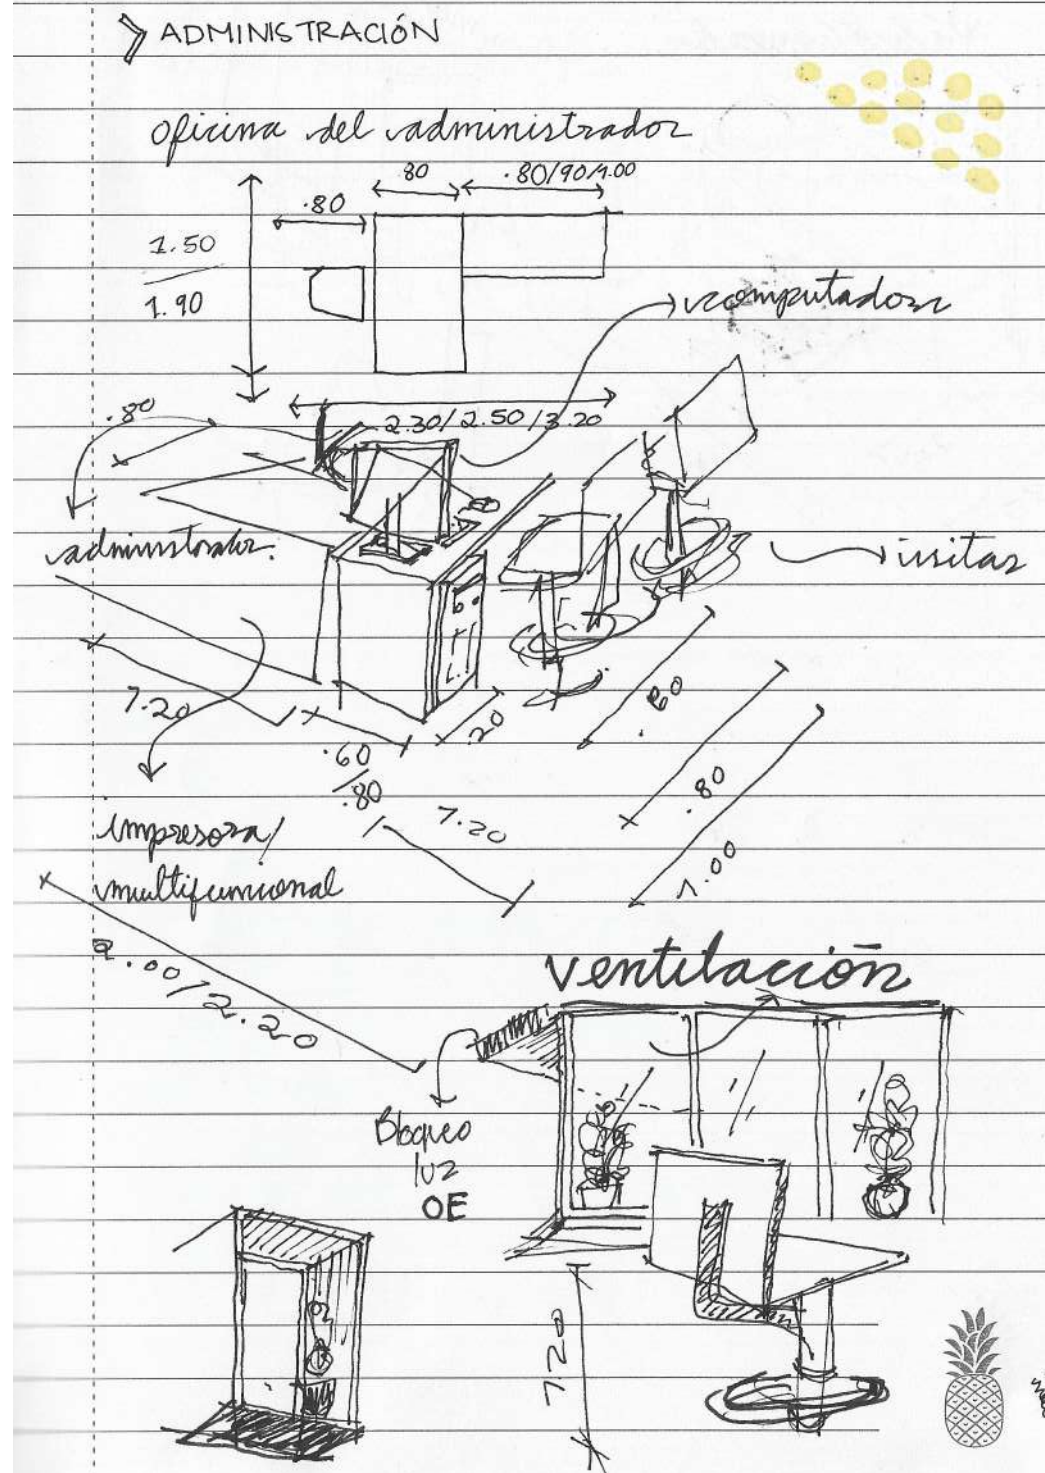 ADMINISTRACIÓN
oficina del administrador
.80
.80/90/1.00
.80
1.50
1.90
computador
.80
2.30/2.50/3.20
administrador.
visitas
1.20
.60
/.80
.20
.60
.80
1.00
1.20
impresora/
multifuncional
2.00/2.20
ventilación
Bloqueo
luz
OE
1.20